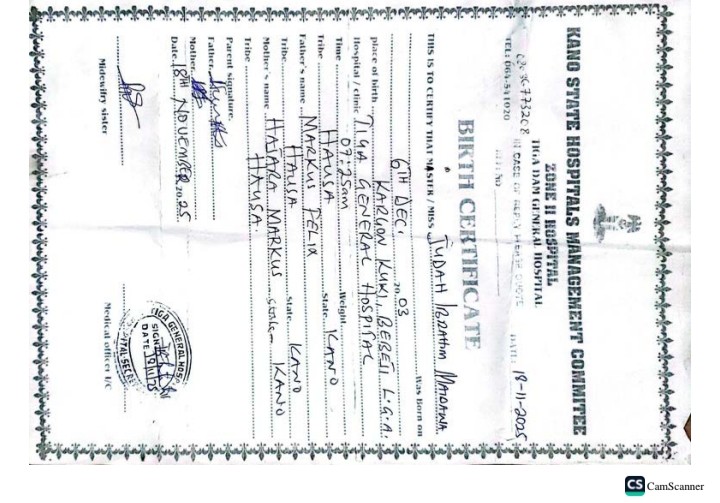 KANO STATE HOSPITALS MANAGEMENT COMMITEE
ZONE II HOSPITAL
TIGA DAM GENERAL HOSPITAL
TEL: 064-541020
773208 IN CASE OF REPLY PLEASE QUOTE DATE 18-11-2025
BIRTH CERTIFICATE
THIS IS TO CERTIFY THAT MASTER / MISS JUDAH IBRAHIM MAIDAWA
Was Born on
6TH DEC. 20 03
place of birth KARUON KUKI, BEBEJI L.G.A.
Hospital / clinic TIGA GENERAL HOSPITAL
Time 07:25am Weight
Tribe HAUSA State KANO
Father's name MARKUS FELIX
Tribe HAUSA State KANO
Mother's name HAJARA MARKUS state KANO
Tribe HAUSA.
Parent signature.
Father
Mother
Date 18TH NOVEMBER 20 25
Midewifry sister
Medical officer I/C
TIGA GENERAL HOSP
SIGN
DATE
CS CamScanner